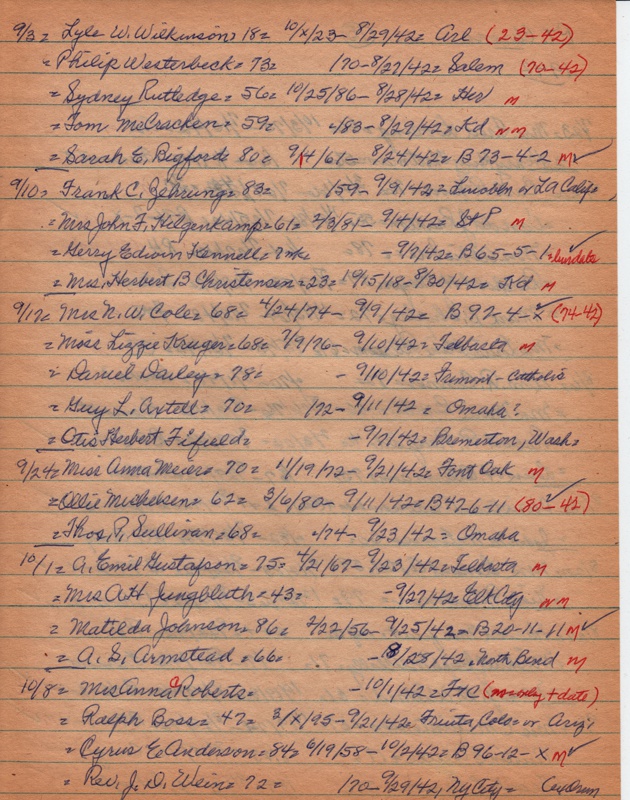 9/3= Lyle W. Wilkinson= 18= 10/x/23- 8/29/42= Arl (23-42)
= Philip Westerbeck= 73= 170-8/27/42= Salem (70-42)
= Sydney Rutledge= 56= 10/25/86- 8/28/42= Her M
= Tom McCracken= 59= /83- 8/29/42= Kd nm
= Sarah E. Bigford= 80= 9/4/61- 8/24/42= B73-4-2 M✓
9/10= Frank C. Zehrung= 83= 159- 9/9/42= Lincoln or LA Calif=
= Mrs John F. Hilgenkamp= 61= 2/3/81- 9/4/42= St P M
= Gerry Edwin Kennell= 2mk= - 9/7/42= B65-5-1=✓
= Mrs. Herbert B Christensen=23= 10/15/18- 8/30/42= Kd M
9/17= Mrs N. W. Cole= 68= 4/24/74- 9/9/42= B97-4-x✓ (74-42)
= Miss Lizzie Kruger= 68= 7/9/76- 9/10/42= Telbasta M
= Daniel Dailey= 78= - 9/10/42= Fremont-Catholic
= Guy L. Axtell= 70= 172- 9/11/42= Omaha?
= Otis Herbert Fifield= - 9/7/42= Bremerton, Wash=
9/24= Miss Anna Meier= 70= 11/19/72- 9/21/42= Font Oak M
= Ollie Mickelsen= 62= 3/6/80- 9/11/42= B47-6-11 (80-42)✓
= Thos. P. Sullivan= 68= /74- 9/23/42= Omaha
10/1= A. Emil Gustafson= 75= 4/21/67- 9/23/42= Telbasta M
= Mrs A H Jungbluth= 43= - 9/27/42= Elk City nm
= Matilda Johnson= 86= 2/22/56- 9/25/42= B20-11-11 M✓
= A. S. Armstead= 66= - 8/28/42, North Bend M
10/8= Mrs Anna C Roberts= - 10/1/42= FtC (no + date)
= Ralph Boss= 47= 3/x/95- 9/21/42= Fruita, Colo= or Ariz?
= Cyrus E Anderson= 84= 6/19/58- 10/2/42= B96-12-x M✓
= Rev. J. D. Wein= 72= 170- 9/29/42, NyCity=